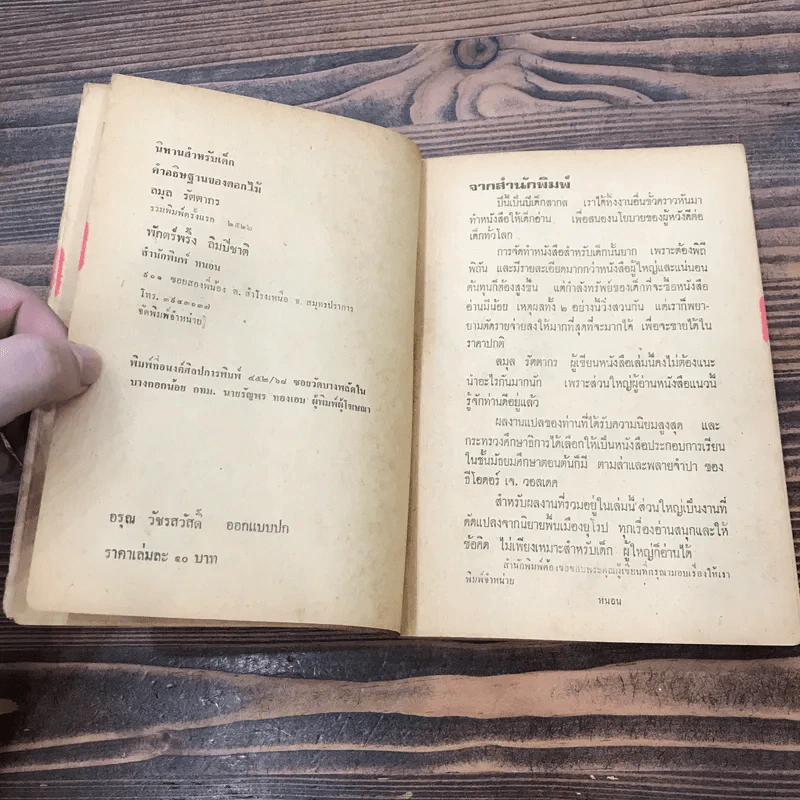 นิทานสำหรับเด็ก
คำอธิษฐานของดอกไม้
ลมุล รัตตากร
รวมพิมพ์ครั้งแรก ๒๕๒๖
พักตร์พริ้ง ถิมปิชาติ
สำนักพิมพ์ หนอน
๙๐๑ ซอยสองพี่น้อง ต. สำโรงเหนือ จ. สมุทรปราการ
โทร. ๓๙๔๓๐๓๗
จัดพิมพ์จำหน่าย
พิมพ์ที่อนงค์ศิลปการพิมพ์ ๔๕๒/๖๘ ซอยวัดบางพลัดใน
บางกอกน้อย กทม. นายรัญพร ทองเอม ผู้พิมพ์ผู้โฆษณา
อรุณ วัชรสวัสดิ์ ออกแบบปก
ราคาเล่มละ ๑๐ บาท
จากสำนักพิมพ์
ปีนี้เป็นปีเด็กสากล เราได้ทิ้งงานอื่นชั่วคราวหันมา
ทำหนังสือให้เด็กอ่าน เพื่อสนองนโยบายของผู้หวังดีต่อ
เด็กทั่วโลก
การจัดทำหนังสือสำหรับเด็กนั้นยาก เพราะต้องพิถี
พิถัน และมีรายละเอียดมากกว่าหนังสือผู้ใหญ่และแน่นอน
ต้นทุนก็ต้องสูงขึ้น แต่กำลังทรัพย์ของเด็กที่จะซื้อหนังสือ
อ่านมีน้อย เหตุผลทั้ง ๒ อย่างนี้วิ่งสวนกัน แต่เราก็พยา-
ยามตัดรายจ่ายลงให้มากที่สุดที่จะมากได้ เพื่อจะขายได้ใน
ราคาปกติ
ลมุล รัตตากร ผู้เขียนหนังสือเล่มนี้คงไม่ต้องแนะ
นำอะไรกันมากนัก เพราะส่วนใหญ่ผู้อ่านหนังสือแนวนี้
รู้จักท่านดีอยู่แล้ว
ผลงานแปลของท่านที่ได้รับความนิยมสูงสุด และ
กระทรวงศึกษาธิการได้เลือกให้เป็นหนังสือประกอบการเรียน
ในชั้นมัธยมศึกษาตอนต้นก็มี ตามล่าและพลายจำปา ของ
ธีโอดอร์ เจ. วอลเดค
สำหรับผลงานที่รวมอยู่ในเล่มนี้ ส่วนใหญ่เป็นงานที่
ดัดแปลงจากนิยายพื้นเมืองยุโรป ทุกเรื่องอ่านสนุกและให้
ข้อคิด ไม่เพียงเหมาะสำหรับเด็ก ผู้ใหญ่ก็อ่านได้
สำนักพิมพ์ต้องขอขอบพระคุณผู้เขียนที่กรุณามอบเรื่องให้เรา
พิมพ์จำหน่าย
หนอน